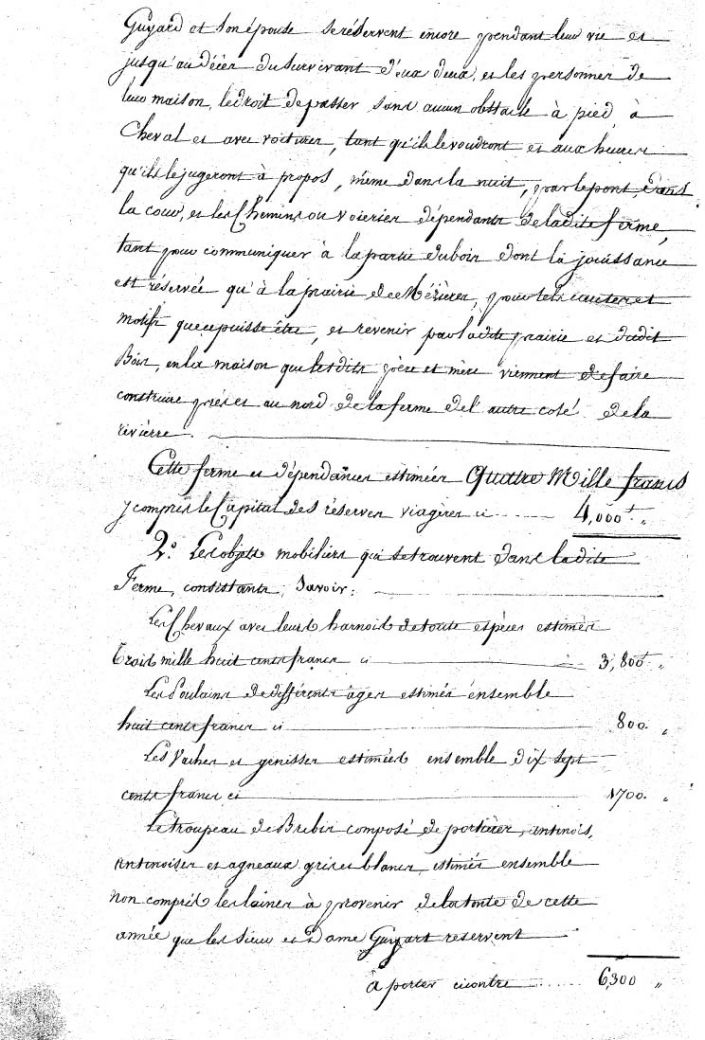 Guyard et son épouse se réservent encore pendant leur vie et
jusqu'au décès du survivant d'eux deux, et les personnes de
leur maison, le droit de passer sans aucun obstacle à pied à
Cheval et avec voitures, tant qu'ils le voudront et aux heures
qu'ils le jugeront à propos, même dans la nuit, par le pont, dans
la cour, et les Chemins ou voieries dépendants de la dite ferme,
tant pour communiquer à la partie du bois dont la jouissance
est réservée qu'à la prairie de Mézières, pour telles causes et
motifs que ce puisse être, et revenir par la dite prairie et du dit
Bois, en la maison que les dits père et mère viennent de faire
construire près et au nord de la ferme de l'autre coté de la
rivierre.
Cette ferme et dépendances estimées Quatre Mille francs
y compris le Capital des réserves viagères ci ...... 4,000 f. "
2.° Les objets mobiliers qui se trouvent dans la dite
Ferme, consistants, Savoir:
Les Chevaux avec leurs harnois de toute espèces estimés
Trois mille huit cents francs ci 3,800 f. "
Les Poulains de différents âges estimés ensemble
huit cents francs ci 800. "
Les Vaches et genisses estimées ensemble dix sept
cents francs ci 1700. "
Le troupeau de Brebis composé de portières, antenois,
antenoises et agneaux gris et blancs, estimés ensemble
non compris les laines à provenir de la tonte de cette
année que les Sieur et Dame Guyart reservent
à porter cicontre ...... 6,300 "